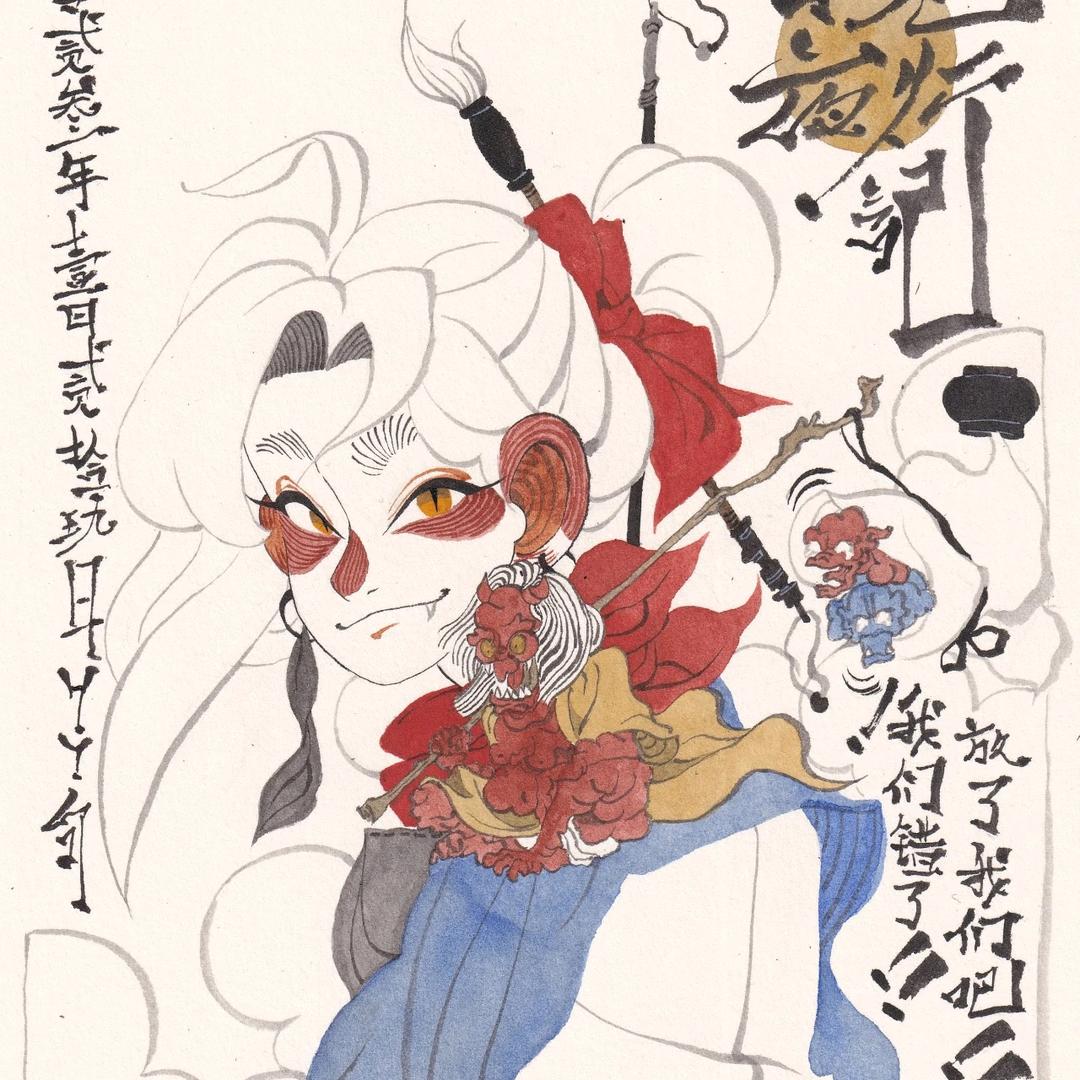 夜行記
放了我们吧!!
我们错了!!
贰叁年壹月贰拾玖日